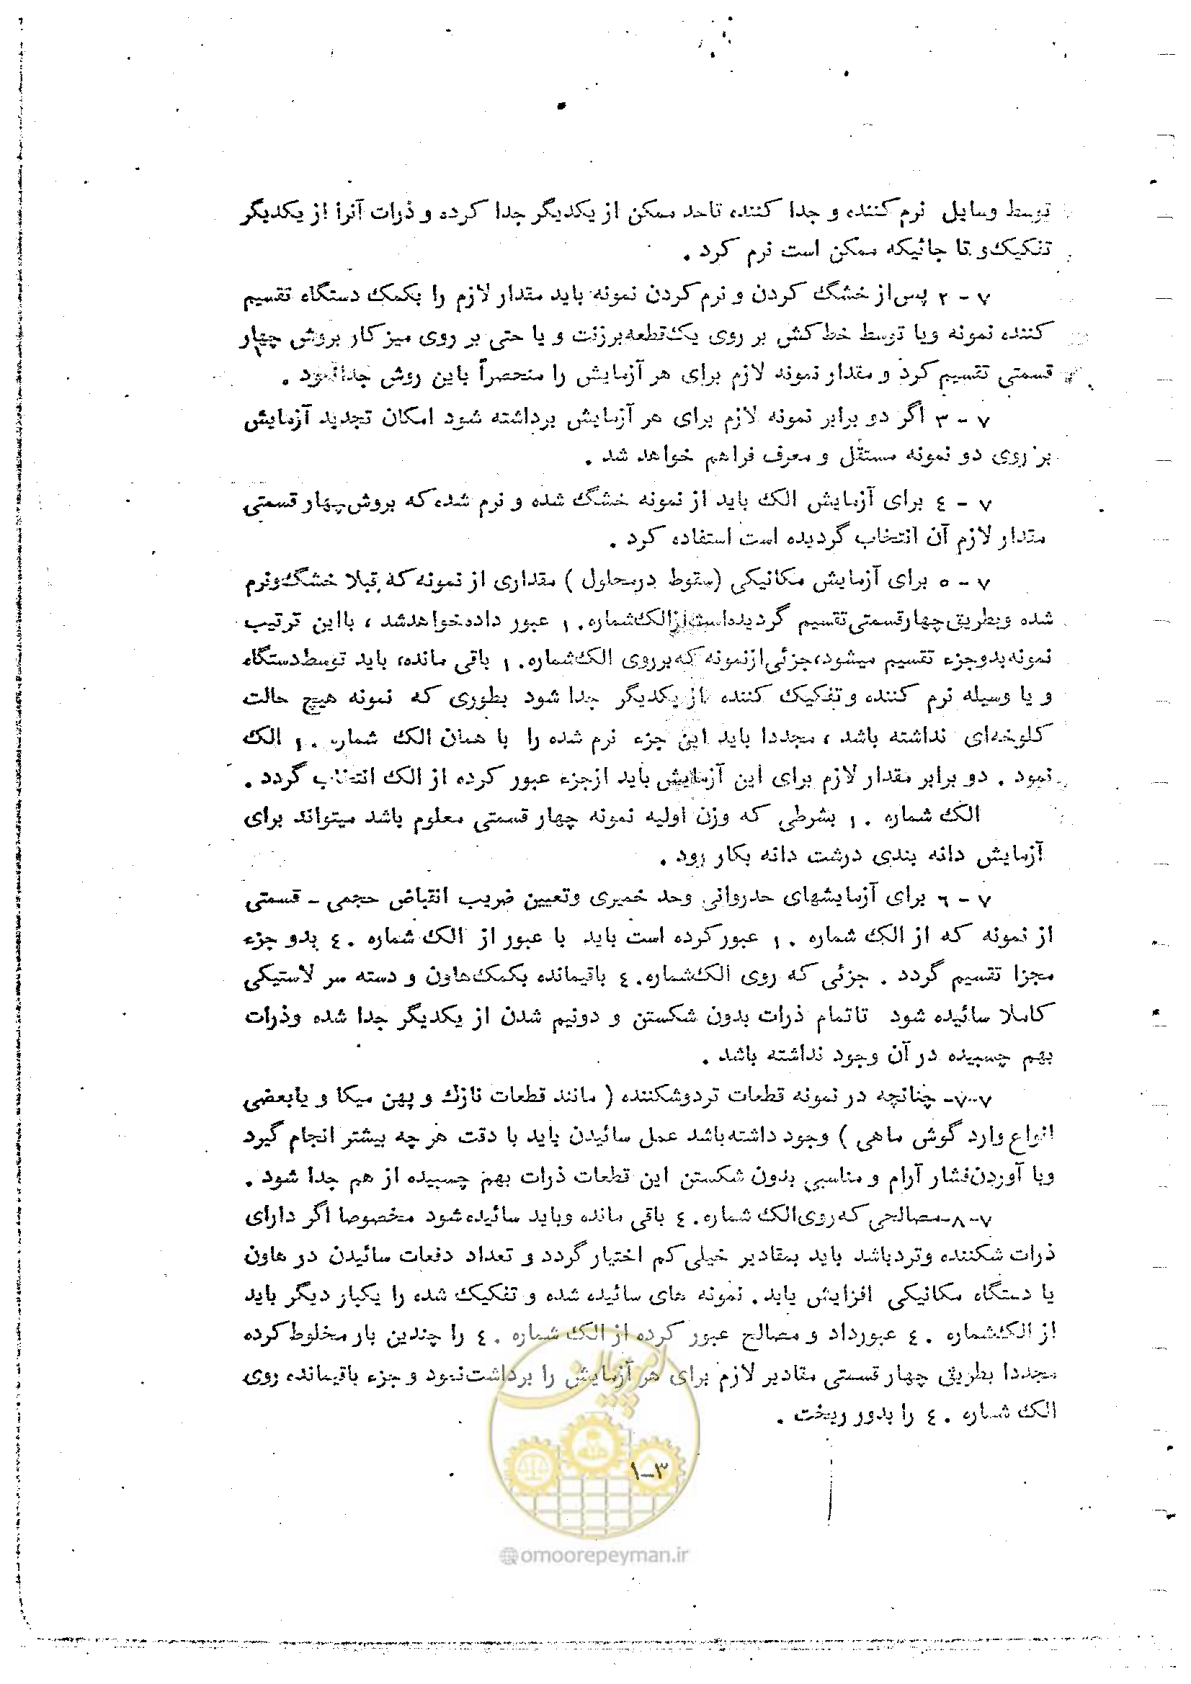 توسط وسایل نرم کننده و جدا کننده تاحد ممکن از یکدیگر جدا کرده و ذرات آنرا از یکدیگر
تفکیک و تا جائیکه ممکن است نرم کرد .
۷ - ۲ پس از خشگ کردن و نرم کردن نمونه باید مقدار لازم را بکمک دستگاه تقسیم
کننده نمونه ویا توسط خط کش بر روی یک قطعه برزنت و یا حتی بر روی میز کار بروش چهار
قسمتی تقسیم کرد و مقدار نمونه لازم برای هر آزمایش را منحصراً باین روش جدا نمود .
۷ - ۳ اگر دو برابر نمونه لازم برای هر آزمایش برداشته شود امکان تجدید آزمایش
بر روی دو نمونه مستقل و معرف فراهم خواهد شد .
۷ - ٤ برای آزمایش الک باید از نمونه خشگ شده و نرم شده که بروش چهار قسمتی
مقدار لازم آن انتخاب گردیده است استفاده کرد .
۷ - ۵ برای آزمایش مکانیکی (سقوط درمحلول ) مقداری از نمونه که قبلا خشگ و نرم
شده وبطریق چهار قسمتی تقسیم گردیده است از الک شماره ۱۰ عبور داده خواهد شد ، بااین ترتیب
نمونه بدو جزء تقسیم میشود، جزئی از نمونه که برروی الک شماره ۱۰ باقی مانده، باید توسط دستگاه
و یا وسیله نرم کننده وتفکیک کننده از یکدیگر جدا شود بطوری که نمونه هیچ حالت
کلوخه‌ای نداشته باشد ، مجددا باید این جزء نرم شده را با همان الک شماره ۱۰ الک
نمود . دو برابر مقدار لازم برای این آزمایش باید ازجزء عبور کرده از الک انتخاب گردد .
الک شماره ۱۰ بشرطی که وزن اولیه نمونه چهار قسمتی معلوم باشد میتواند برای
آزمایش دانه بندی درشت دانه بکار رود .
۷ - ٦ برای آزمایشهای حدروانی وحد خمیری وتعیین ضریب انقباض حجمی - قسمتی
از نمونه که از الک شماره ۱۰ عبور کرده است باید با عبور از الک شماره ٤۰ بدو جزء
مجزا تقسیم گردد . جزئی که روی الک شماره ٤۰ باقیمانده بکمک هاون و دسته سر لاستیکی
کاملا سائیده شود تا تمام ذرات بدون شکستن و دونیم شدن از یکدیگر جدا شده وذرات
بهم چسبیده در آن وجود نداشته باشد .
۷-۷- چنانچه در نمونه قطعات تردوشکننده ( مانند قطعات نازک و پهن میکا و یابعضی
انواع وارد گوش ماهی ) وجود داشته باشد عمل سائیدن باید با دقت هر چه بیشتر انجام گیرد
وبا آوردن فشار آرام و مناسبی بدون شکستن این قطعات ذرات بهم چسبیده از هم جدا شود .
۷-۸-مصالحی که روی الک شماره ٤۰ باقی مانده وباید سائیده شود مخصوصا اگر دارای
ذرات شکننده وترد باشد باید بمقادیر خیلی کم اختیار گردد و تعداد دفعات سائیدن در هاون
یا دستگاه مکانیکی افزایش یابد. نمونه های سائیده شده و تفکیک شده را یکبار دیگر باید
از الک شماره ٤۰ عبورداد و مصالح عبور کرده از الک شماره ٤۰ را چندین بار مخلوط کرده
مجددا بطریق چهار قسمتی مقادیر لازم برای هر آزمایش را برداشت نمود و جزء باقیمانده روی
الک شماره ٤۰ را بدور ریخت .
امور پیمان
۱-۳
@omoorepeyman.ir